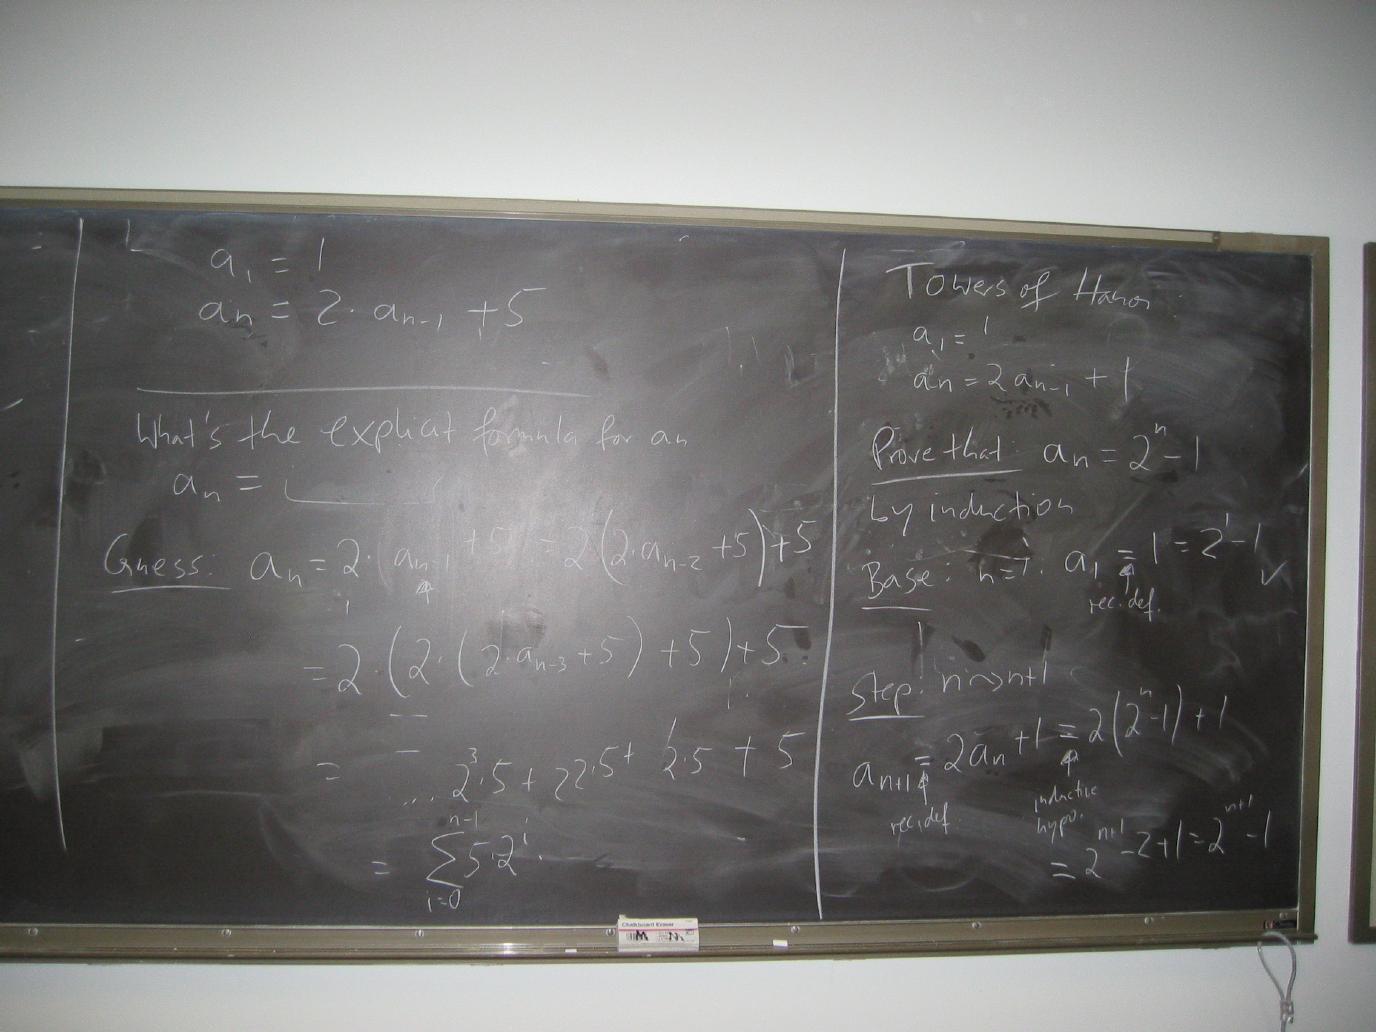 a₁ = 1
aₙ = 2 · aₙ₋₁ + 5
What's the explicit formula for an
aₙ =
Guess: aₙ = 2 · (aₙ₋₁ + 5) = 2(2·aₙ₋₂ + 5) + 5
= 2 · (2 · (2·aₙ₋₃ + 5) + 5) + 5
= ... 2³·5 + 2²·5 + 2·5 + 5
= ∑ᵢ₌₀ⁿ⁻¹ 5·2ⁱ
Towers of Hanoi
a₁ = 1
aₙ = 2aₙ₋₁ + 1
Prove that: aₙ = 2ⁿ - 1
by induction
Base: n=1. a₁ = 1 = 2¹ - 1 ✓
rec. def.
Step: n ⇝ n+1
aₙ₊₁ = 2aₙ + 1 = 2(2ⁿ - 1) + 1
rec. def.
inductive
hypo.
= 2ⁿ⁺¹ - 2 + 1 = 2ⁿ⁺¹ - 1
Chalkboard Eraser